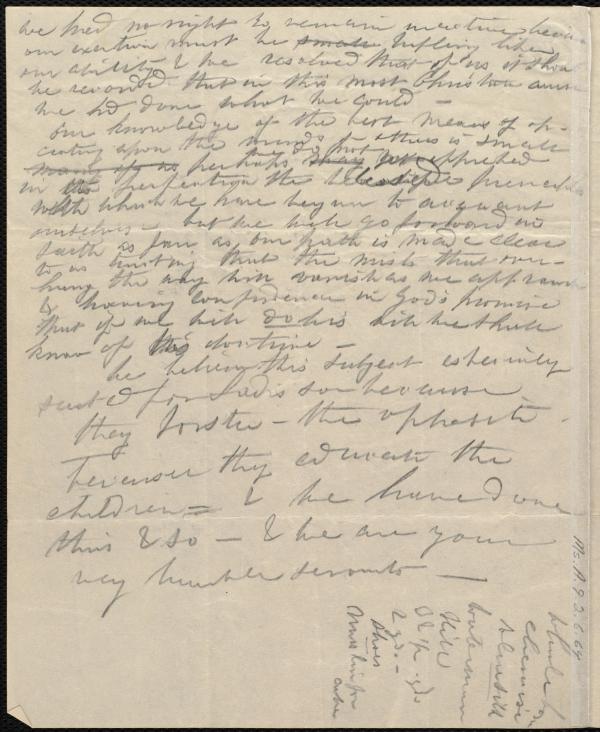 we had no right to remain inactive because
our exertion must be trifling like
our ability & we resolved that of us it should
be recorded that in this most Christian cause
we had done what we could –
Our knowledge of the best means of op-
erating upon the minds of others is small
perhaps we do not yet apprehend
in perfection the principles
with which we have begun to acquaint
ourselves – but we will go forward in
faith as far as our path is made clear
to us trusting that the mists that over-
hung the way will vanish as we approach
& having confidence in God's promise
that if we will do his will we shall
know of his doctrine –
We believe this subject especially
suited for ladies son because
they foster – the opposite –
because they educate the
children = & we have done
this & so – & we are your
very humble servants –
Ms. A. 9. 2. 6. 64
chemise
Waterman
yds
2 yds. –
Shoes
Muslin for